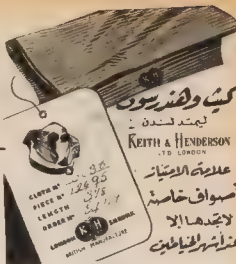 كيث وهندرسون
ليمتد لندن
KEITH & HENDERSON
LTD LONDON
علامة الامتياز
أصواف خاصة
لا تجدها إلا
عند أشهر الخياطين
CLOTH Nº
PIECE Nº
LENGTH
ORDER Nº
LONDON
BRITISH MANUFACTURE